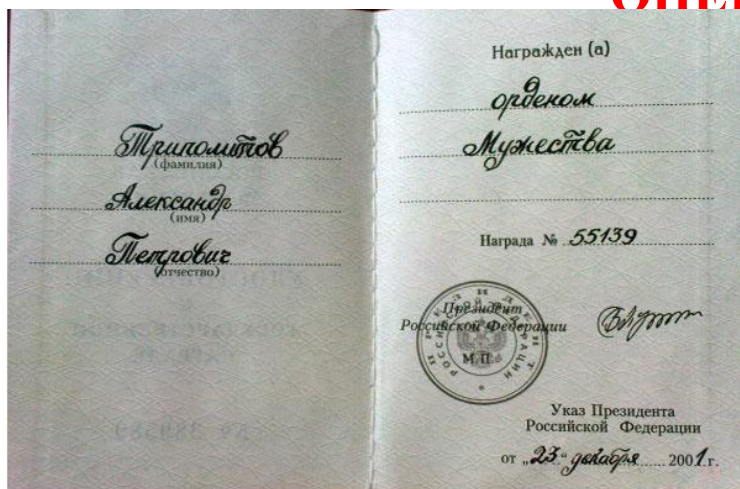 Триполитов
(фамилия)
Александр
(имя)
Петрович
(отчество)
Награжден (а)
орденом
Мужества
Награда № 55139
Президент
Российской Федерации
М.П.
Указ Президента
Российской Федерации
от „23“ декабря 2001 г.